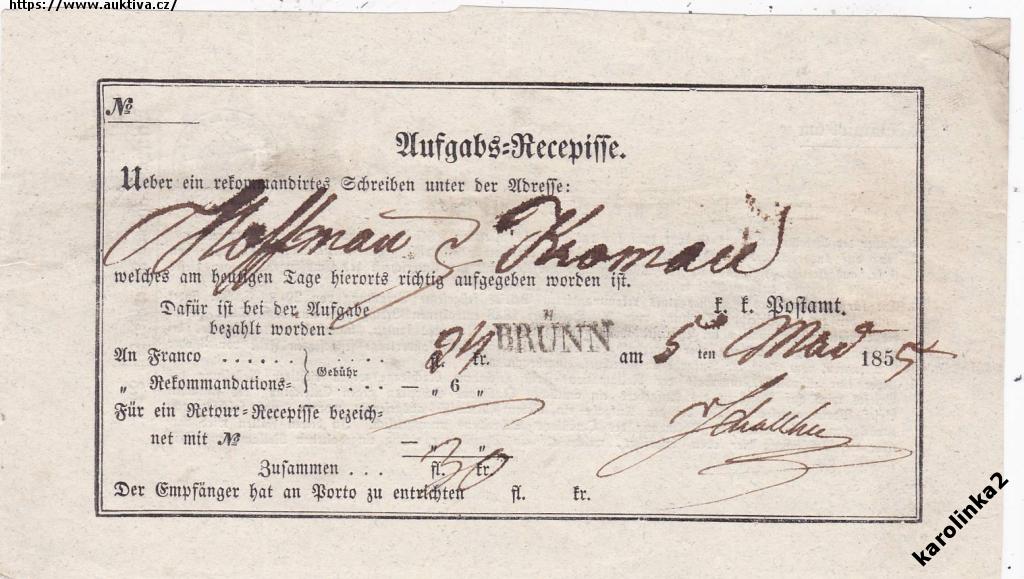 https://www.auktiva.cz/
№
Aufgabs-Recepisse.
Ueber ein rekommandirtes Schreiben unter der Adresse:
Hoffnau Kromau
welches am heutigen Tage hierorts richtig aufgegeben worden ist.
Dafür ist bei der Aufgabe k. k. Postamt.
bezahlt worden:
BRÜNN
An Franco . . . . . . . . . . . Gebühr fl. 24 kr. am 5 ten 185
„ Rekommandations= . . . . — „ 6 „
Für ein Retour-Recepisse bezeich-
net mit № — „ „
Zusammen . . . fl. 30 kr
Der Empfänger hat an Porto zu entrichten fl. kr.
karolinka2